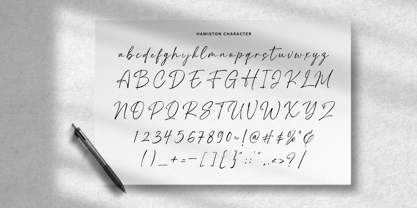 HAMISTON CHARACTER
abcdefghijklmnopqrstuvwxyz
ABCDEFGHIJKLM
NOPQRSTUVWXYZ
1234567890~!@#$%^&
()_+=-[]{}":;'",.<>?/